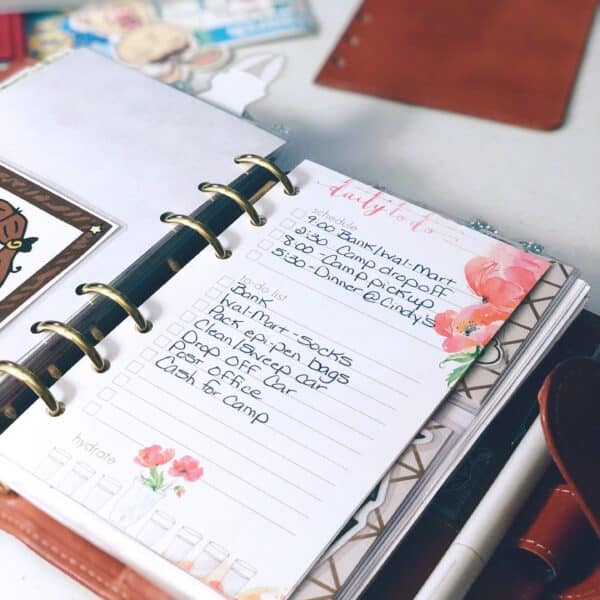 daily to do
schedule
9:00 Bank/Wal-Mart
2:30-Camp dropoff
8:00-Camp pickup
5:30-Dinner @Cindy's
to-do list
Bank
Wal-Mart-socks
Pack epi-pen bags
Clean/sweep car
Drop off Car
Post office
Cash for Camp
hydrate